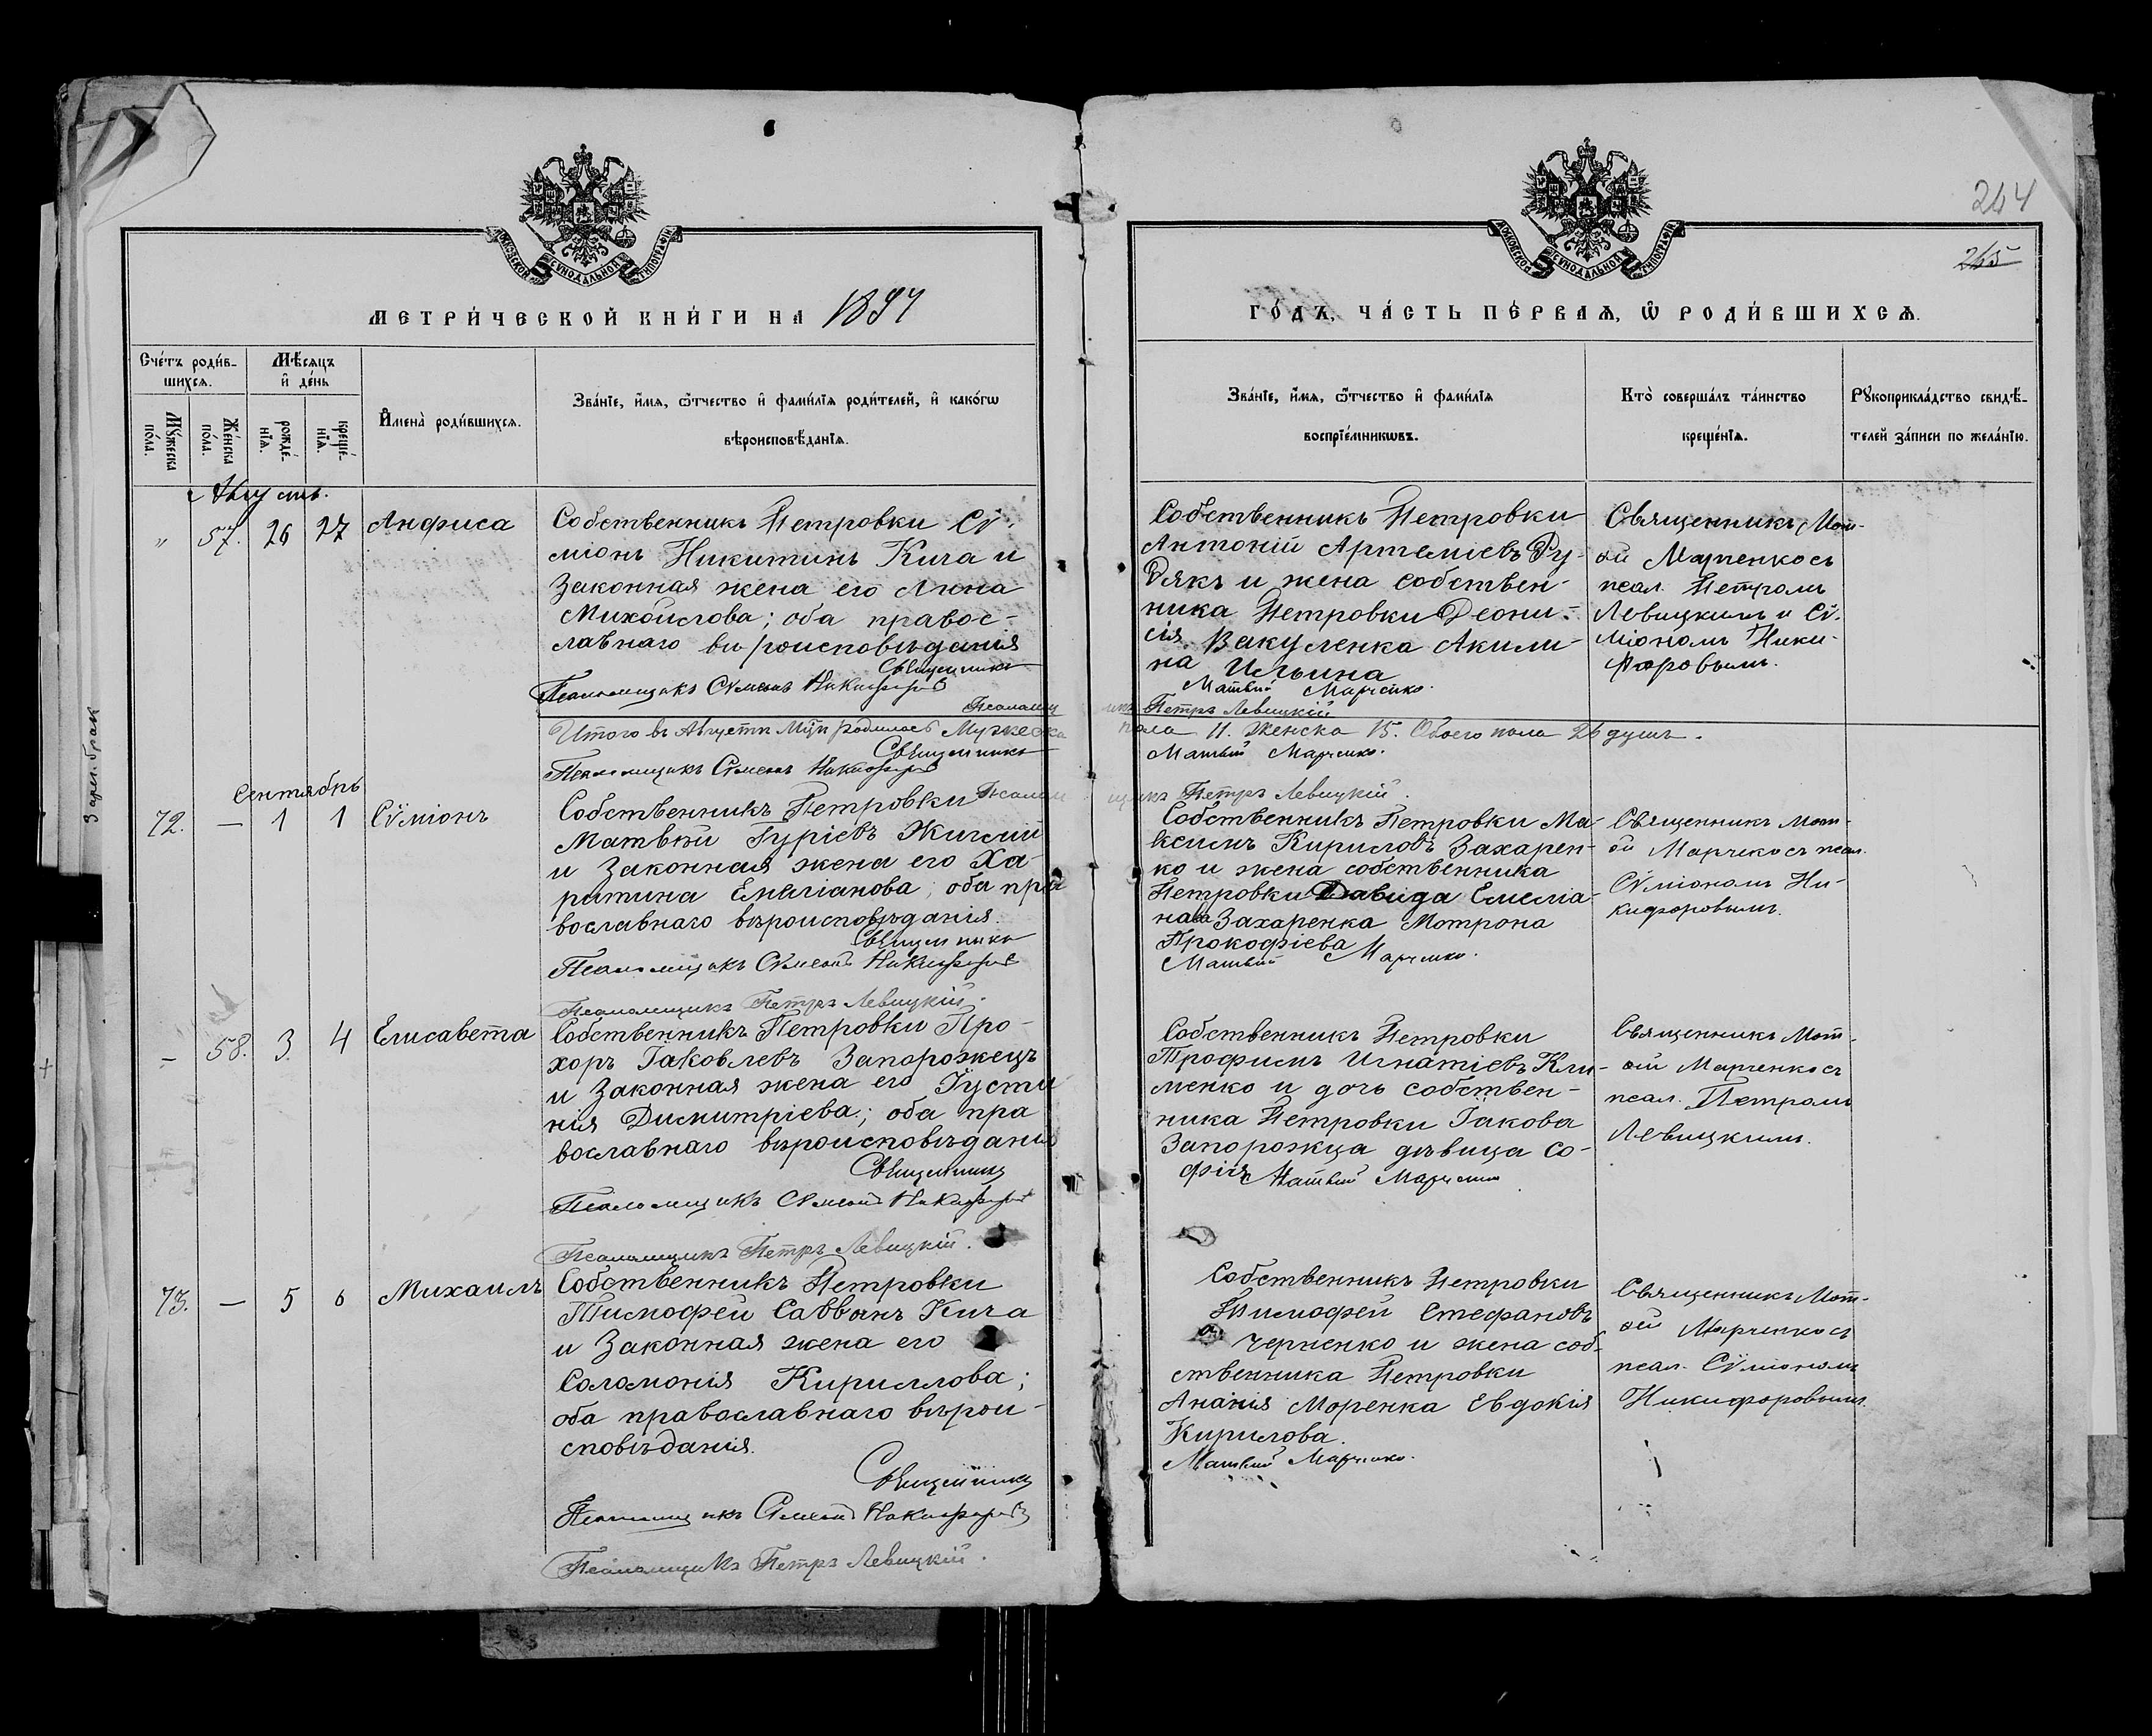 264
265
МОСКОВСКОЙ СѴНОДАЛЬНОЙ ТИПОГРАФІИ
МОСКОВСКОЙ СѴНОДАЛЬНОЙ ТИПОГРАФІИ
МЕТРИ́ЧЕСКОЙ КНИ́ГИ НА 1894
ГО́ДЪ, ЧА́СТЬ ПЕ́РВАѦ, Ѿ РОДИ́ВШИХСѦ.
Сче́тъ роди́в-
шихсѧ.
Мѣ́сѧцъ
и҆ де́нь
Мꙋ́жеска
по́ла.
Же́нска
по́ла.
рожде́-
нїѧ.
креще́-
нїѧ.
И҆мена̀ роди́вшихсѧ.
Зва́нїе, и҆́мѧ, ѻ҆́тчество и҆ фами́лїѧ роди́телей, и҆ како́гѡ
вѣроисповѣ́данїѧ.
Зва́нїе, и҆́мѧ, ѻ҆́тчество и҆ фами́лїѧ
воспрїе́мникѡвъ.
Кто̀ соверша́лъ та́инство
креще́нїѧ.
Рꙋкоприкла́дство свидѣ́-
телей за́писи по жела́нїю.
Августъ.
" 57. 26 27 Анфиса
Собственникъ Петровки Сѵ-
міонъ Никитинъ Кича и
законная жена его Анна
Михайлова; оба правос-
лавнаго вѣроисповѣданія
Священникъ
Псаломщикъ Сѵмеонъ Никифоровъ
Собственникъ Петровки
Антоній Артеміевъ Ру-
дякъ и жена собствен-
ника Петровки Деони-
сія Вакуленка Акили-
на Ильина
Матвѣй Марченко.
Псаломщикъ Петръ Левицкій
Священникъ Мат-
ѳій Марченко съ
псал. Петромъ
Левицкимъ и Сѵ-
міономъ Ники-
форовымъ.
Итого въ Августѣ М-цѣ родилось Мужеска пола 11. Женска 15. Обоего пола 26 душъ.
Священникъ Матвѣй Марченко.
Псаломщикъ Сѵмеонъ Никифоровъ
Псаломщикъ Петръ Левицкій.
Сентябрь
72. — 1 1 Сѵміонъ
Собственникъ Петровки
Матвѣй Гуріевъ
и законная жена его Ха-
ритина Емиліанова; оба пра
вославнаго вѣроисповѣданія.
Священникъ
Псаломщикъ Сѵмеонъ Никифоровъ
Псаломщикъ Петръ Левицкій.
Собственникъ Петровки Ма-
ксимъ Кириловъ Захарен-
ко и жена собственника
Петровки Давида Емелiа-
нова Захаренка Мотрона
Прокофіева
Матвѣй Марченко.
Священникъ Мат-
ѳій Марченко съ псал.
Сѵміономъ Ни-
кифоровымъ.
— 58. 3. 4 Елисавета
Собственникъ Петровки Про-
хоръ Іаковлевъ Запорожецъ
и законная жена его Іусти-
нія Димитріева; оба пра
вославнаго вѣроисповѣданія
Священникъ
Псаломщикъ Сѵмеонъ Никифоровъ
Псаломщикъ Петръ Левицкій.
Собственникъ Петровки
Трофимъ Игнатіевъ Кли-
менко и дочь собствен-
ника Петровки Іакова
Запорожца дѣвица Со-
фія
Матвѣй Марченко
Священникъ Мат-
ѳій Марченко съ
псал. Петромъ
Левицкимъ.
73. — 5 6 Михаилъ
Собственникъ Петровки
Тимофей Саввинъ Кича
и законная жена его
Соломонія Кириллова;
оба православнаго вѣрои-
сповѣданія.
Священникъ
Псаломщикъ Сѵмеонъ Никифоровъ
Псаломщикъ Петръ Левицкій.
Собственникъ Петровки
Тимофей Стефановъ
Черненко и жена соб-
ственника Петровки
Ананія Моренка Евдокія
Кирилова.
Матвѣй Марченко.
Священникъ Мат-
ѳій Марченко съ
псал. Сѵміономъ
Никифоровымъ.